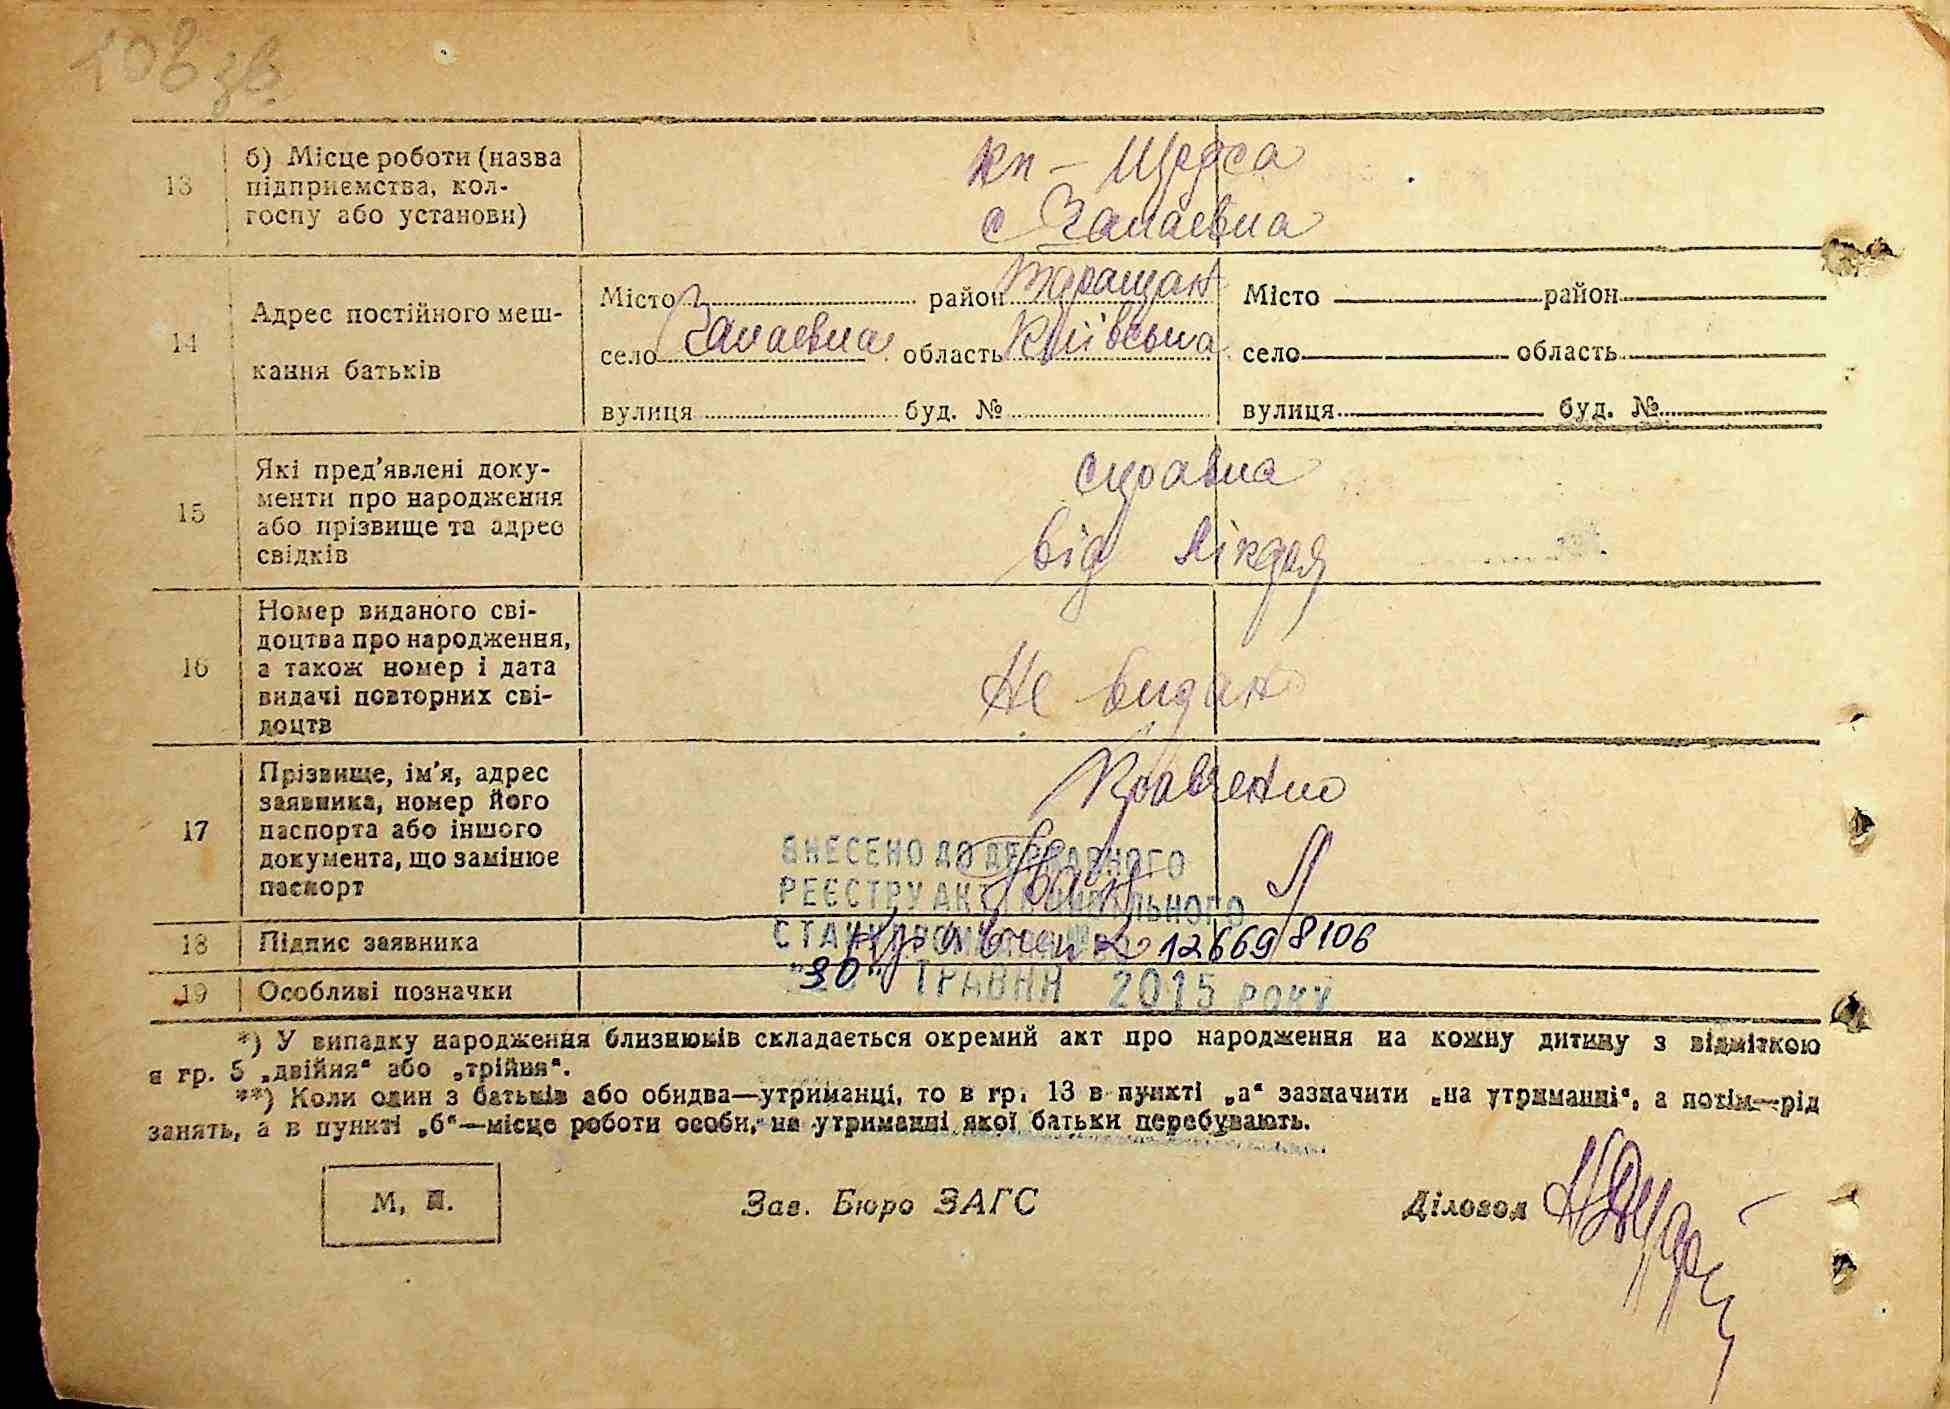 108 зв.
13
б) Місце роботи (назва
підприємства, кол-
госпу або установи)
кп - Щорса
с Чапаєвка
14
Адрес постійного меш-
кання батьків
Місто район Таращан Місто район
село Чапаєвка область Київська село область
вулиця буд. № вулиця буд. №
15
Які пред'явлені доку-
менти про народження
або прізвище та адрес
свідків
справка
від лікаря
16
Номер виданого сві-
доцтва про народження,
а також номер і дата
видачі повторних сві-
доцтв
Не видано
17
Прізвище, ім'я, адрес
заявника, номер його
паспорта або іншого
документа, що замінює
паспорт
Кравченко
Іван
ВНЕСЕНО ДО ДЕРЖАВНОГО
РЕЄСТРУ АКТІВ ЦИВІЛЬНОГО
СТАНУ ГРОМАДЯН ЗА №
126698106
"30" ТРАВНЯ 2015 РОКУ
18 Підпис заявника Кравченко
19 Особливі позначки
*) У випадку народження близнюків складається окремий акт про народження на кожну дитину з відміткою
в гр. 5 „двійня“ або „трійня“.
**) Коли один з батьків або обидва—утриманці, то в гр. 13 в пункті „а“ зазначити „на утриманні“, а потім—рід
занять, а в пункті „б“—місце роботи особи, на утриманні якої батьки перебувають.
М. П.
Зав. Бюро ЗАГС
Діловод